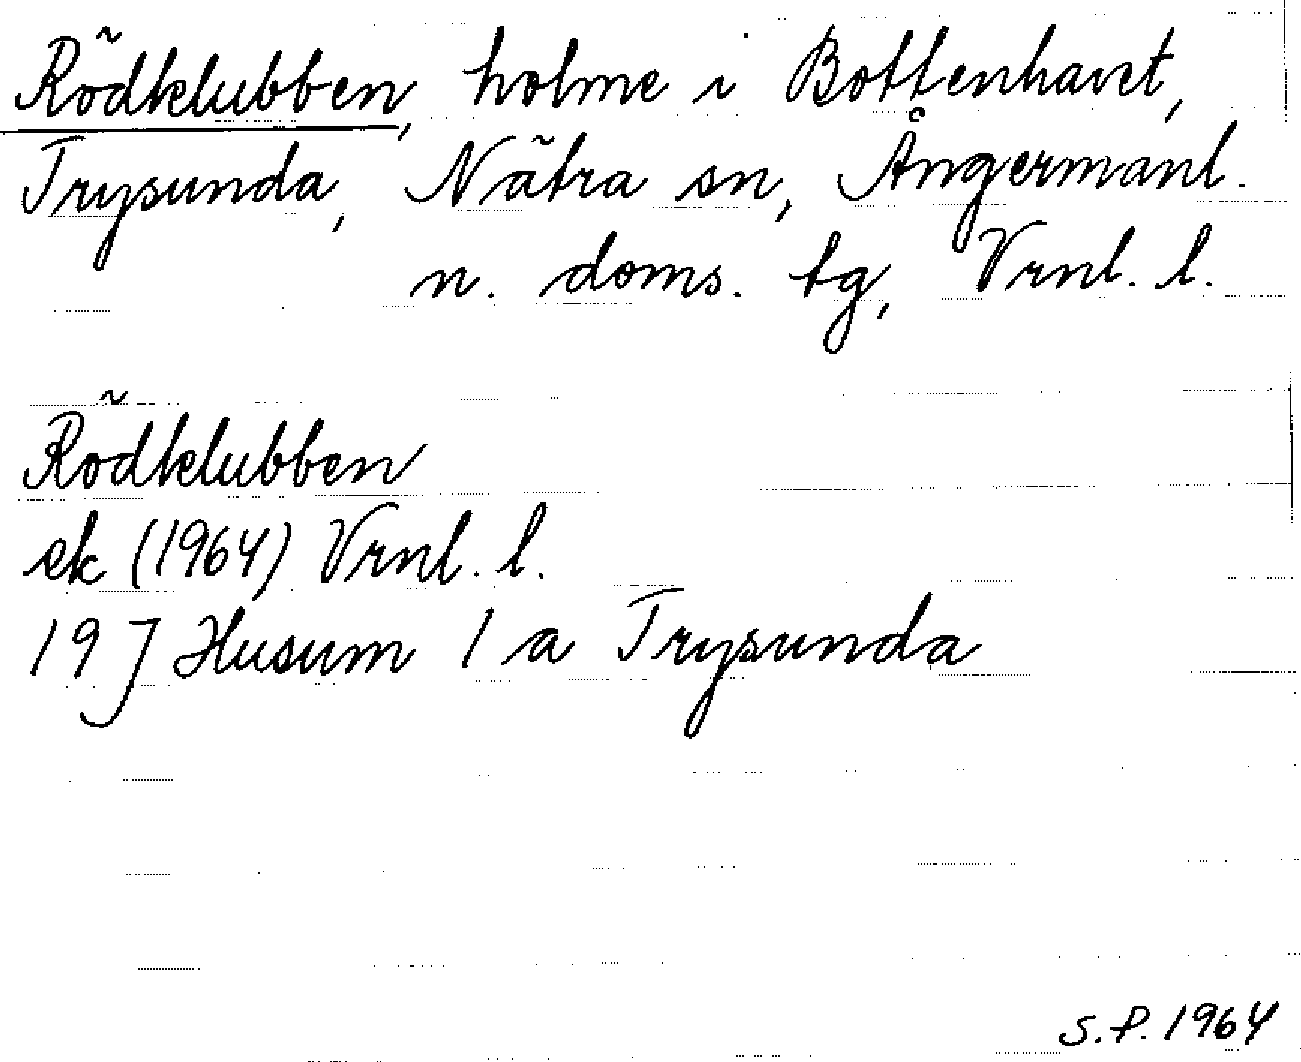 Rödklubben, holme i Bottenhavet,
Trysunda, Nätra sn, Ångermanl.
n. doms. tg, Vrnl. l.
Rödklubben
ek (1964) Vrnl. l.
19 J Husum 1 a Trysunda
S.P. 1964